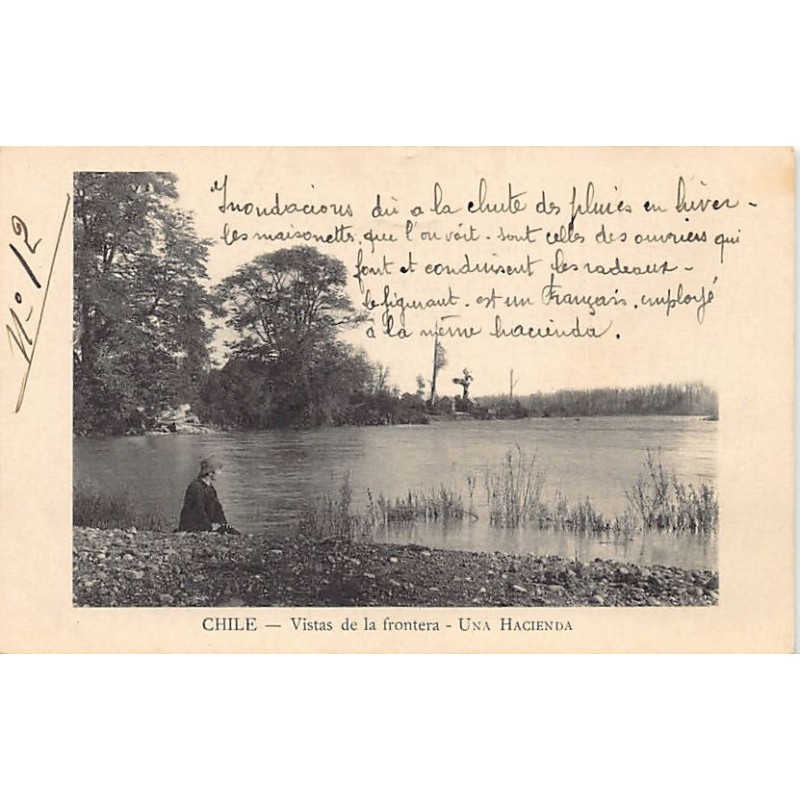 Inondacions dû a la chute des pluies en hiver -
les maisonettes, que l'on voit - sont celles des ouvriers qui
font et conduisent les radeaux -
le figurant, est un Français, employé
à la même hacienda.
N° 12
CHILE — Vistas de la frontera - UNA HACIENDA